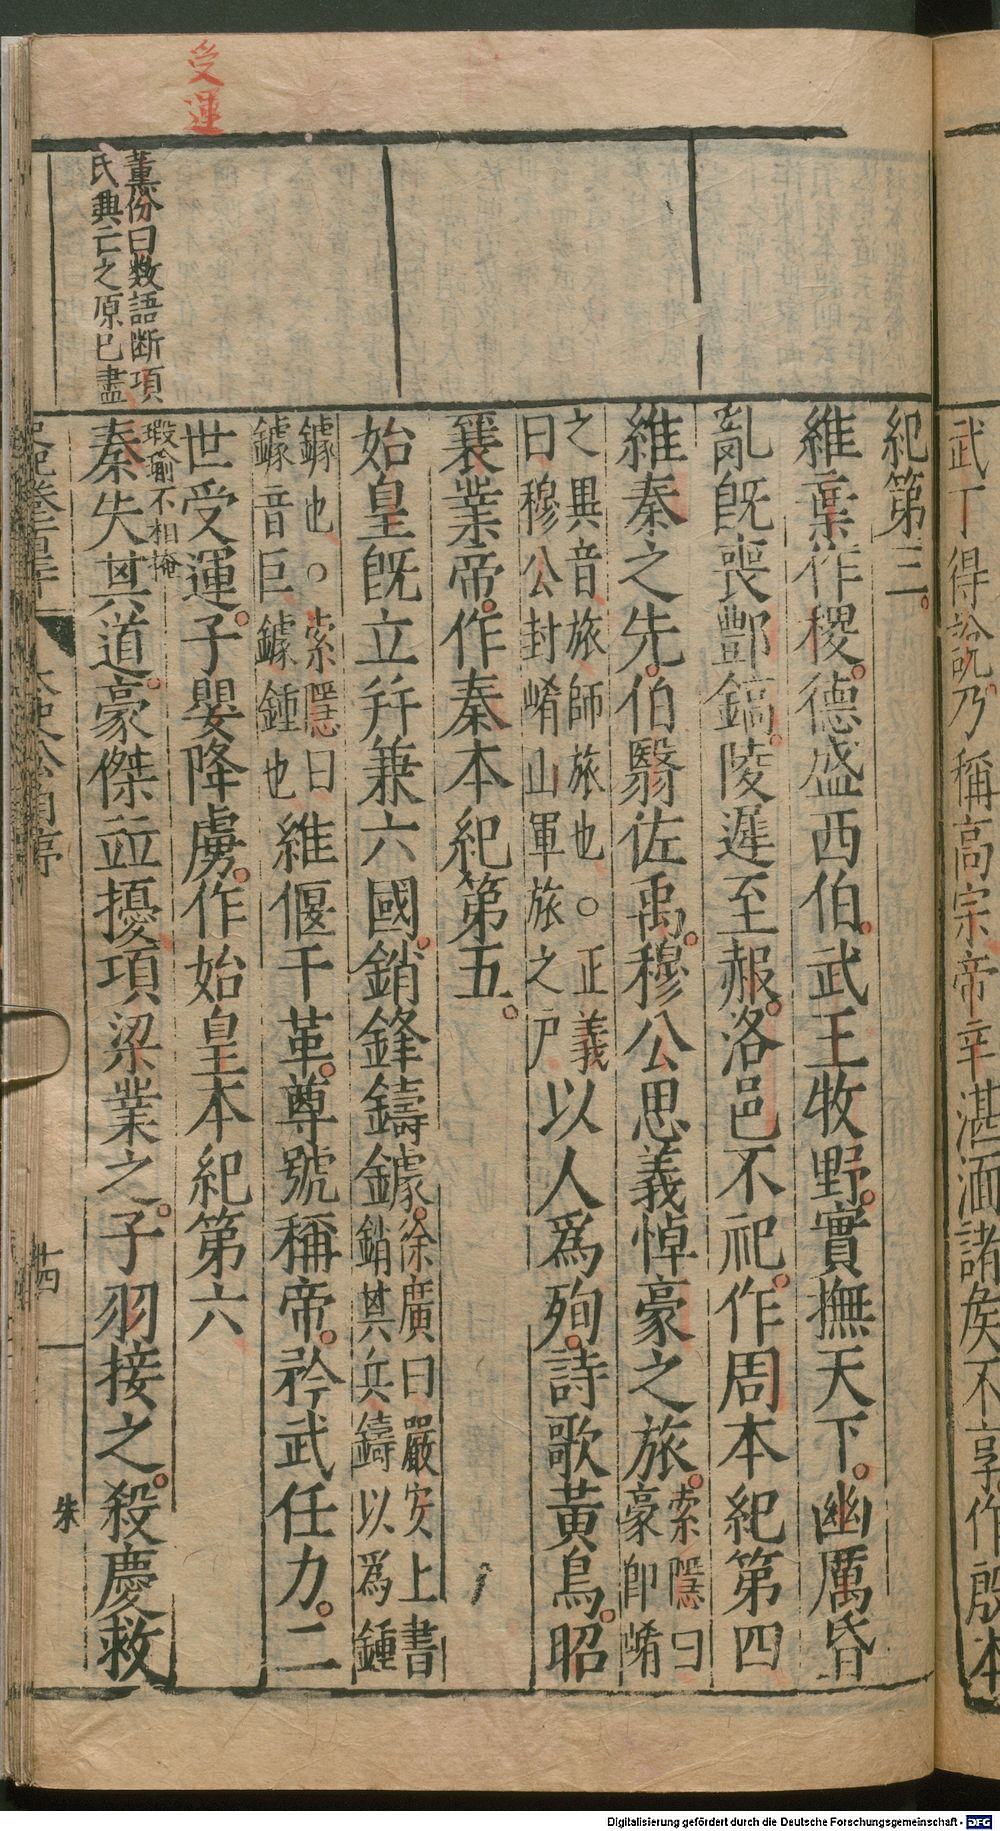 武丁得說乃稱高宗帝辛湛湎諸矦不享作殷本
紀第三
維棄作稷德盛西伯武王牧野實撫天下幽厲昏
亂旣喪酆鎬陵遲至赧洛邑不祀作周本紀第四
維秦之先伯翳佐禹穆公思義悼豪之旅索隱曰
豪即崤
之異音旅師旅也○正義
曰穆公封崤山軍旅之尸以人爲殉詩歌黃鳥昭
襄業帝作秦本紀第五
始皇旣立幷兼六國銷鋒鑄鐻徐廣曰嚴安上書
銷其兵鑄以爲鍾
鐻也○索隱曰
鐻音巨鐻鍾也維偃干革尊號稱帝矜武任力二
世受運子嬰降虜作始皇本紀第六
瑕瑜不相掩
秦失其道豪傑並擾項梁業之子羽接之殺慶救
受運
董份曰數語斷項
氏興亡之原已盡
十四
朱
Digitalisierung gefördert durch die Deutsche Forschungsgemeinschaft - DFG